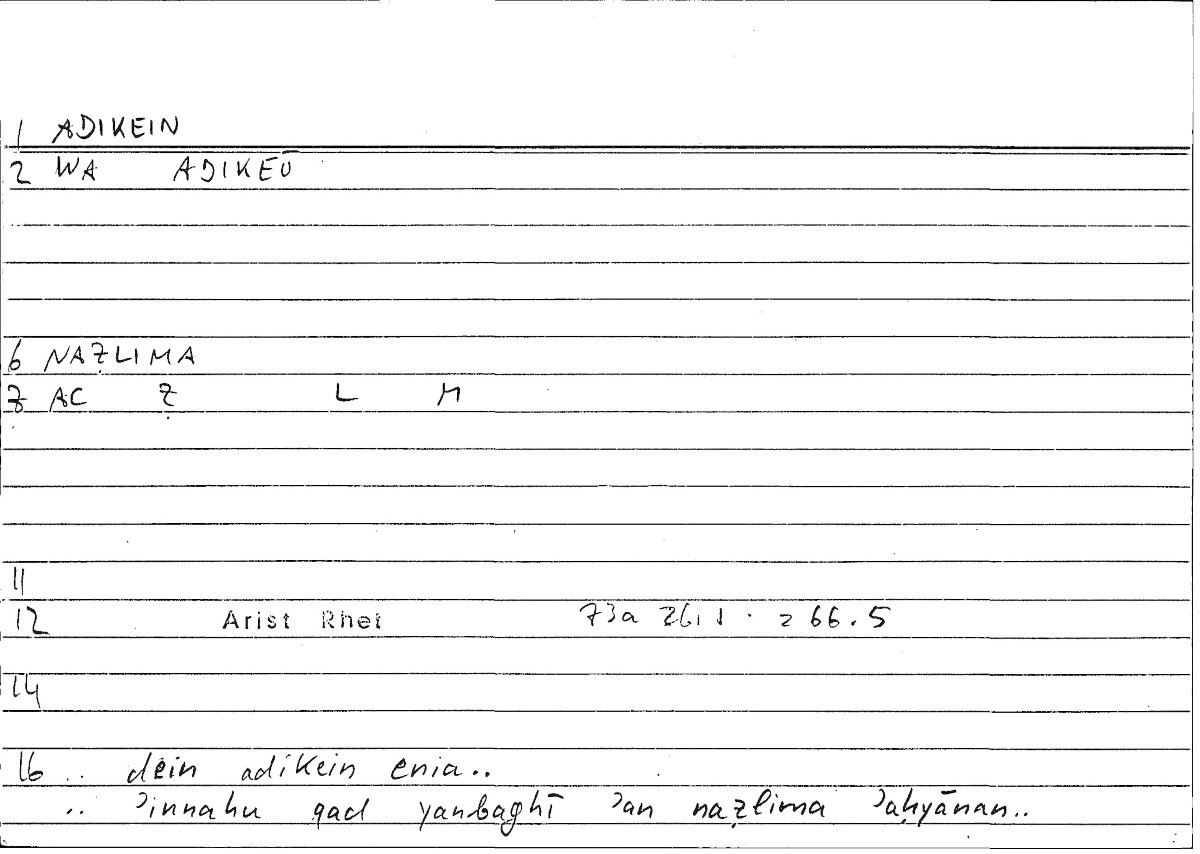 1 ADIKEIN
2 WA ADIKEŌ
6 NAẒLIMA
7 AC Ẓ L M
11
12 Arist Rhet 73a 26, 1 = 66.5
14
16 .. dein adikein enia..
.. ʾinnahu qad yanbaghī ʾan naẓlima ʾaḥyānan..